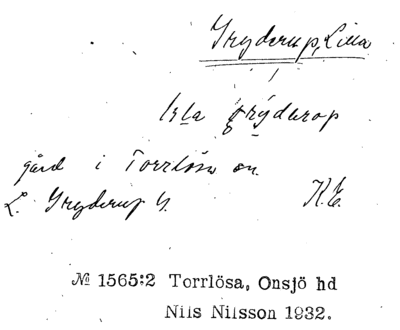 Gryderup, Lilla
lɩla grýderop
gård i Torrlösa sn.
L. Gryderup G.
K.E.
№ 1565:2 Torrlösa, Onsjö hd
Nils Nilsson 1932.